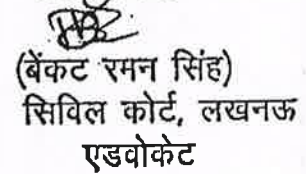 (बेंकट रमन सिंह)
सिविल कोर्ट, लखनऊ
एडवोकेट